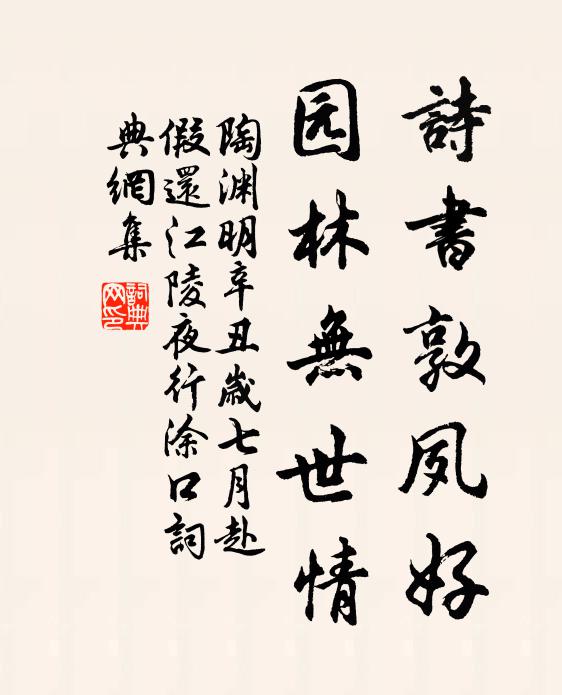 詩書敦夙好
园林無世情
陶渊明辛丑歲七月赴
假還江陵夜行涂口詞
典網集
詞典
网印